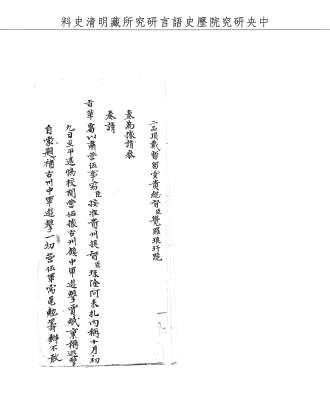 中央研究院歷史語言研究所藏明清史料
二品頂戴暫留雲貴總督臣覺羅琅玕跪
奏為據請參
奏請
旨革審以肅營伍事竊臣接准貴州提督臣珠隆阿來札內稱十月初
九日至平遠協校閱營伍據古州鎮中軍遊擊賈斌稟稱遊擊
自蒙題補古州中軍遊擊一切營伍軍需黽勉籌辦不敢